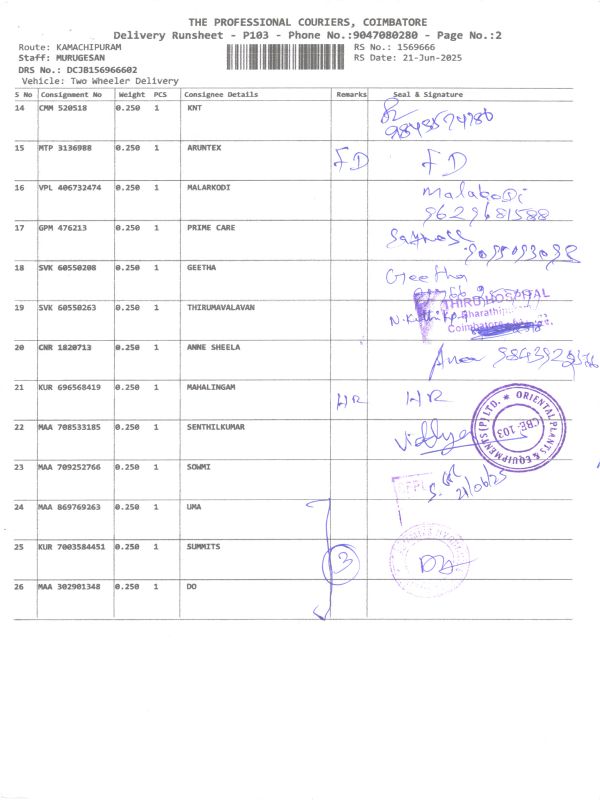 THE PROFESSIONAL COURIERS, COIMBATORE
Delivery Runsheet - P103 - Phone No.:9047080280 - Page No.:2
Route: KAMACHIPURAM RS No.: 1569666
Staff: MURUGESAN RS Date: 21-Jun-2025
DRS No.: DCJB156966602
Vehicle: Two Wheeler Delivery
S No Consignment No Weight PCS Consignee Details Remarks Seal & Signature
14 CMM 520518 0.250 1 KNT
15 MTP 3136988 0.250 1 ARUNTEX FD FD
16 VPL 406732474 0.250 1 MALARKODI
9629681588
17 GPM 476213 0.250 1 PRIME CARE
18 SVK 60550208 0.250 1 GEETHA Geetha
19 SVK 60550263 0.250 1 THIRUMAVALAVAN THIRD HOSPITAL
20 CNR 1820713 0.250 1 ANNE SHEELA
21 KUR 696568419 0.250 1 MAHALINGAM
22 MAA 708533185 0.250 1 SENTHILKUMAR Vidhya ORIENTAL PLANTS & EQUIPMENTS (P) LTD. * CBE-103
23 MAA 709252766 0.250 1 SOWMI 21/06/25
24 MAA 869769263 0.250 1 UMA
25 KUR 7003584451 0.250 1 SUMMITS 3
26 MAA 302901348 0.250 1 DO